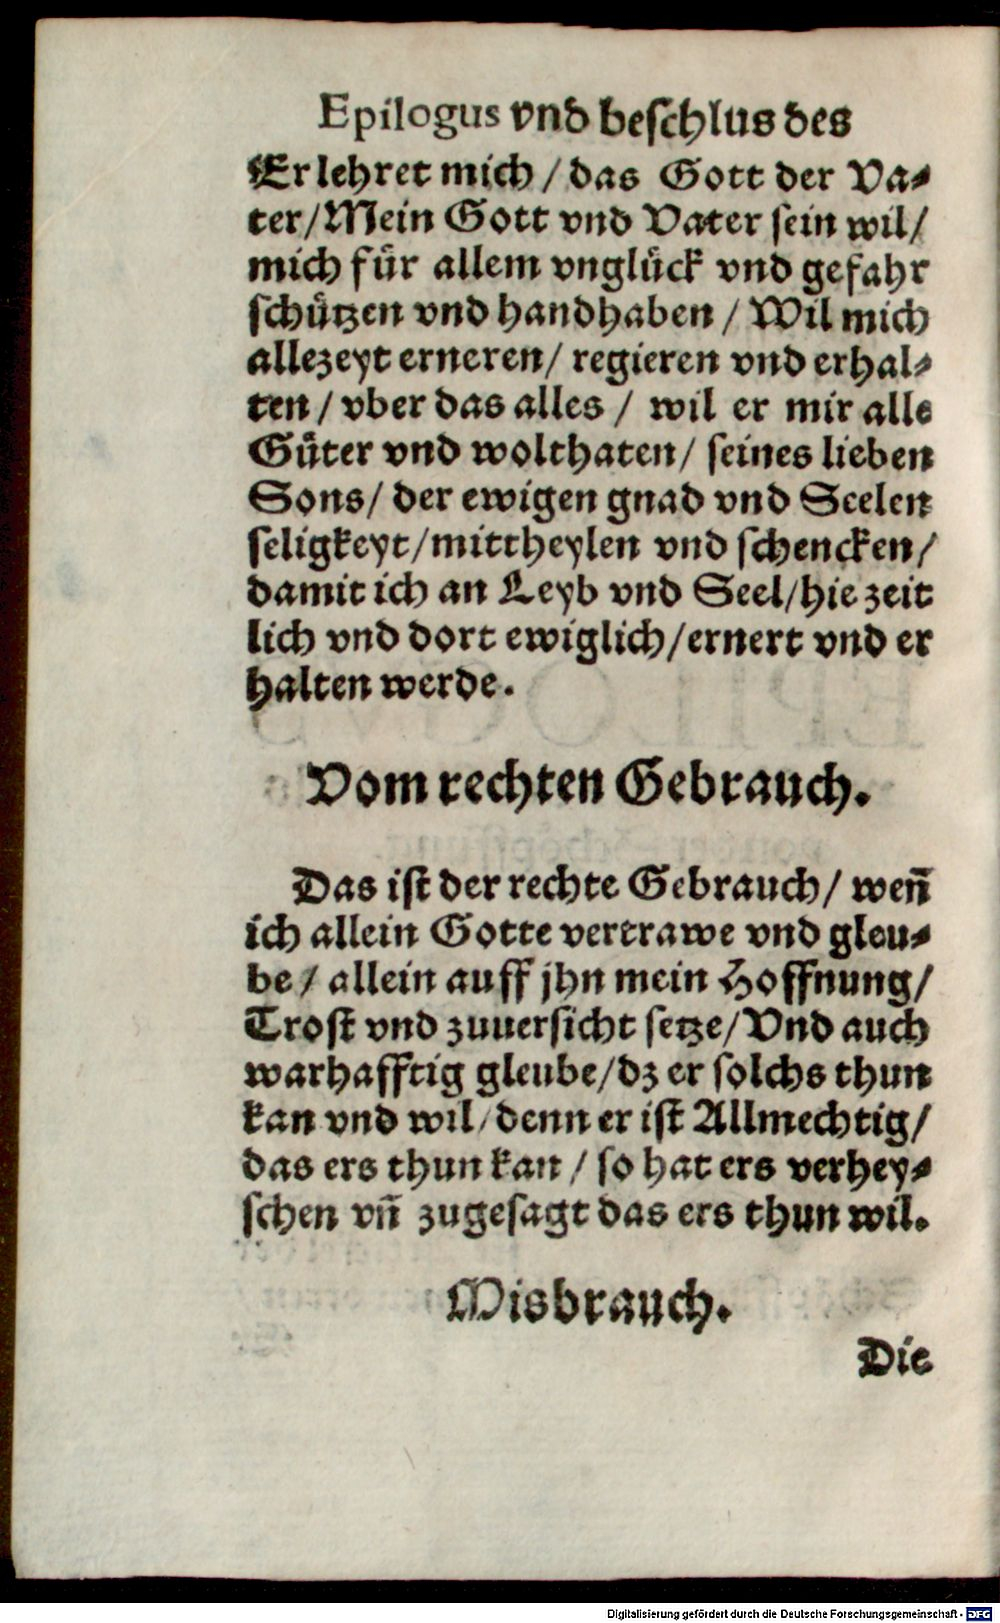 Epilogus vnd beschlus des
Er lehret mich / das Gott der Va-
ter/Mein Gott vnd Vater sein wil/
mich fuͤr allem vngluͤck vnd gefahr
schuͤtzen vnd handhaben / Wil mich
allezeyt erneren/ regieren vnd erhal-
ten / vber das alles / wil er mir alle
Guͤter vnd wolthaten/ seines lieben
Sons/ der ewigen gnad vnd Seelen
seligkeyt/mittheylen vnd schencken/
damit ich an Leyb vnd Seel/hie zeit
lich vnd dort ewiglich/ernert vnd er
halten werde.
Vom rechten Gebrauch.
Das ist der rechte Gebrauch/ wen̄
ich allein Gotte vertrawe vnd gleu-
be / allein auff jhn mein Hoffnung/
Trost vnd zuuersicht setze/Vnd auch
warhafftig gleube/dz er solchs thun
kan vnd wil/denn er ist Allmechtig/
das ers thun kan / so hat ers verhey-
schen vn̄ zugesagt das ers thun wil.
Misbrauch.
Die
Digitalisierung gefördert durch die Deutsche Forschungsgemeinschaft - DFG